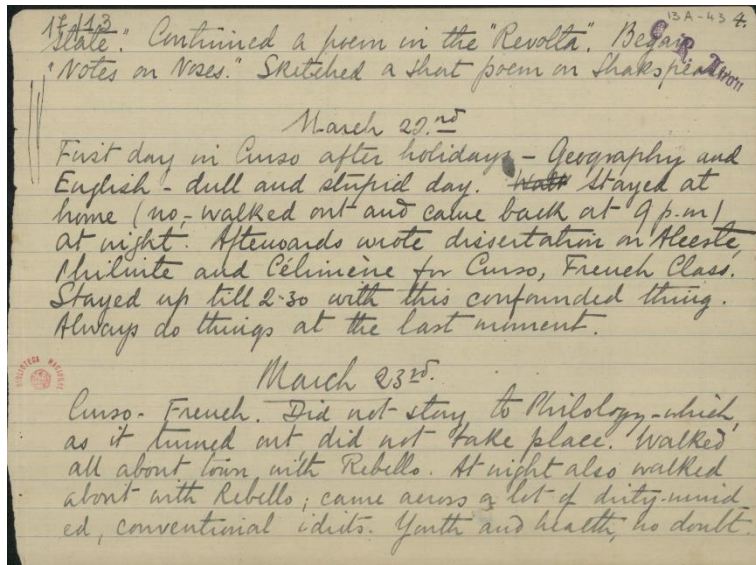 17/13
13A-43 4.
C. R. Anon
state". Continued a poem in the "Revolta". Began
"Notes on Noses." Sketched a short poem on Shakspeare
March 22.nd
First day in Curso after holidays - Geography and
English - dull and stupid day. Walk stayed at
home (no, - walked out and came back at 9 p.m)
at night. Afterwards wrote dissertation on Alceste,
Philinte and Célimène for Curso, French Class.
Stayed up till 2-30 with this confounded thing.
Always do things at the last moment.
BIBLIOTECA NACIONAL
March 23rd.
Curso - French. Did not stay to Philology - which,
as it turned out, did not take place. Walked
all about town with Rebello. At night also walked
about with Rebello; came across a lot of dirty-mind
ed, conventional idiots. Youth and health, no doubt.